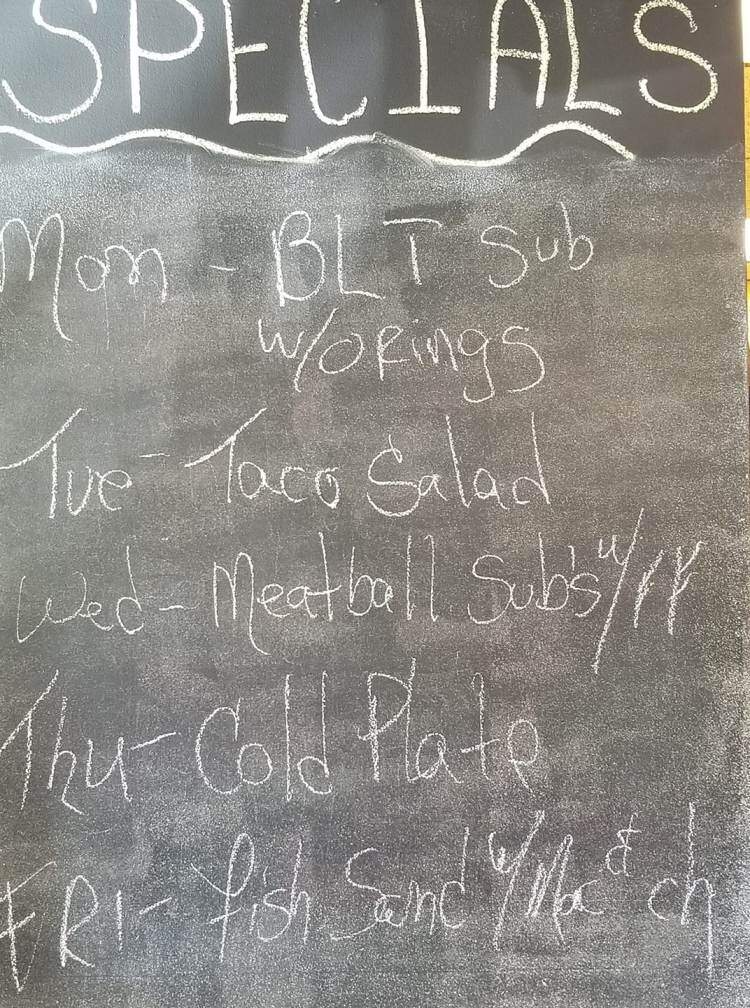 SPECIALS
Mon - BLT Sub
w/ORings
Tue - Taco Salad
Wed - Meatball Sub's w/FF
Thu - Cold Plate
FRI - Fish Sand w/Mac & ch